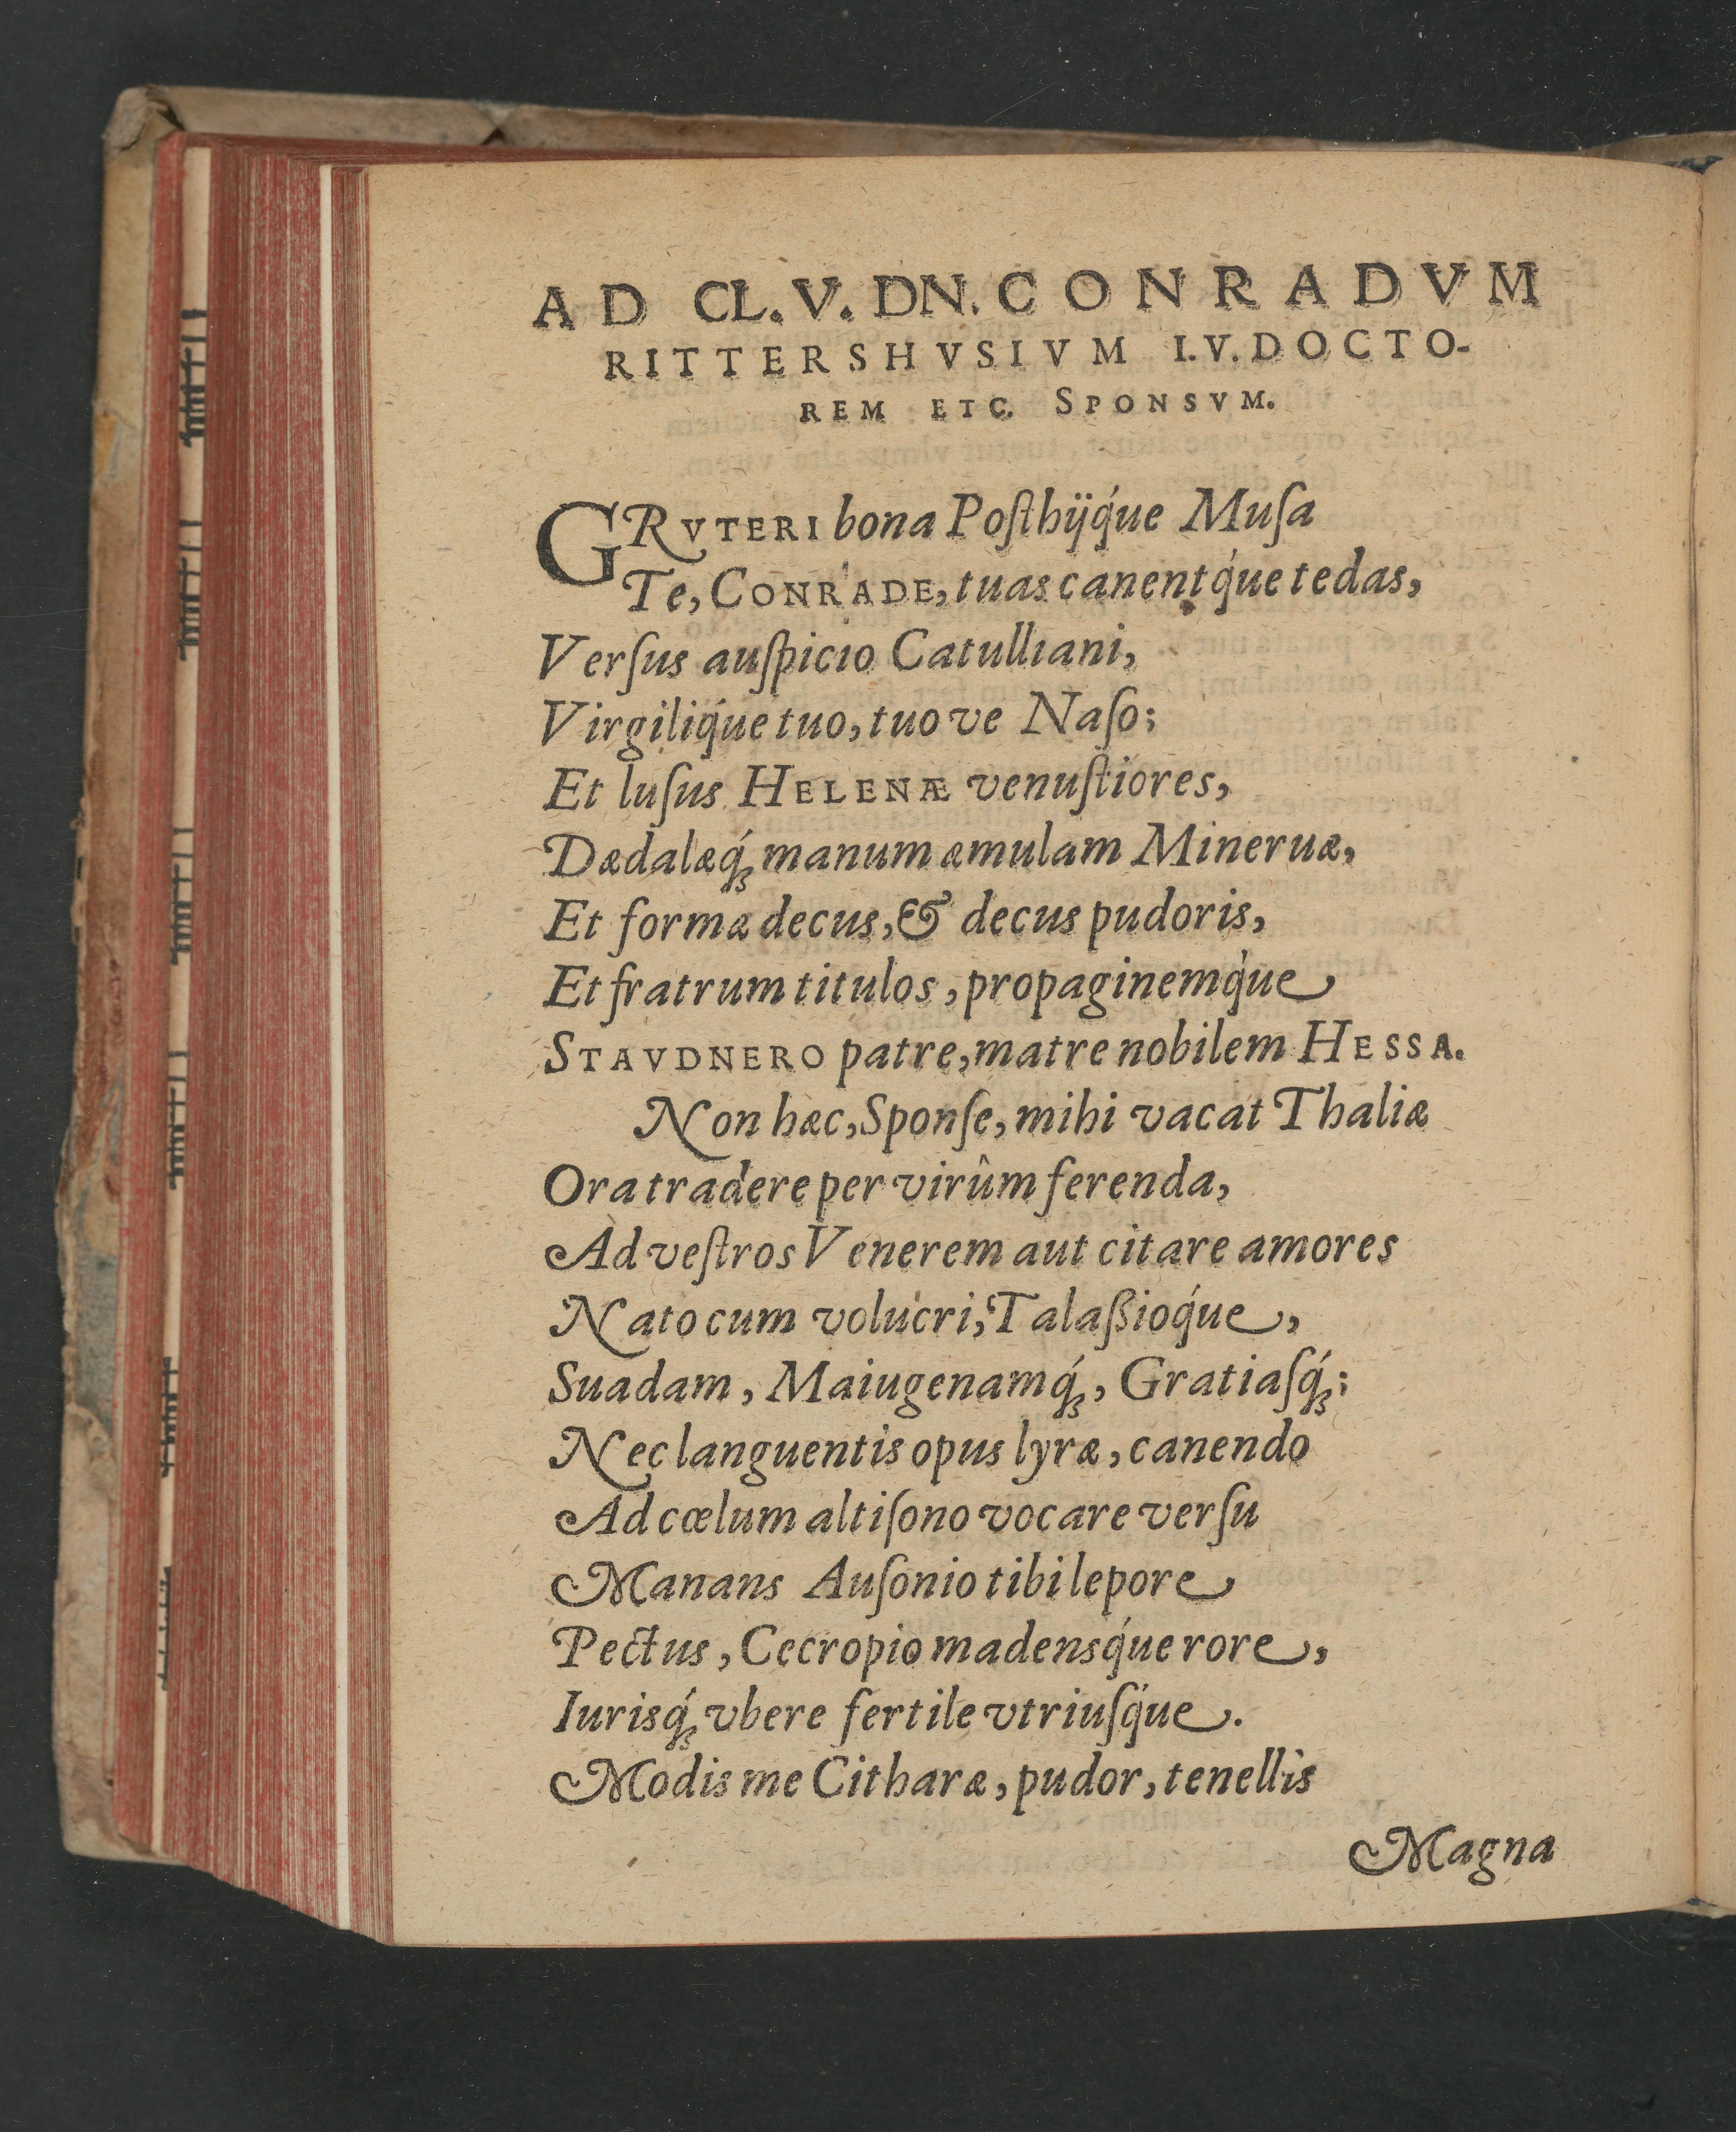 AD CL. V. DN. CONRADVM
RITTERSHVSIVM I. V. DOCTO-
REM ETC. SPONSVM.
GRVTERI bona Posthijq́ue Musa
Te, CONRADE, tuas canentq́ue tedas,
Versus auspicio Catulliani,
Virgiliq́ue tuo, tuo ve Naso;
Et lusus HELENÆ venustiores,
Dædalæq́; manum æmulam Mineruæ,
Et formæ decus, & decus pudoris,
Et fratrum titulos, propaginemq́ue
STAVDNERO patre, matre nobilem HESSA.
Non hæc, Sponse, mihi vacat Thaliæ
Ora tradere per virûm ferenda,
Ad vestros Venerem aut citare amores
Nato cum volucri, Talaßioq́ue,
Suadam, Maiugenamq́;, Gratiasq́;;
Nec languentis opus lyræ, canendo
Ad cœlum altisono vocare versu
Manans Ausonio tibi lepore
Pectus, Cecropio madensq́ue rore,
Iurisq́; vbere fertile vtriusq́ue.
Modis me Citharæ, pudor, tenellis
Magna